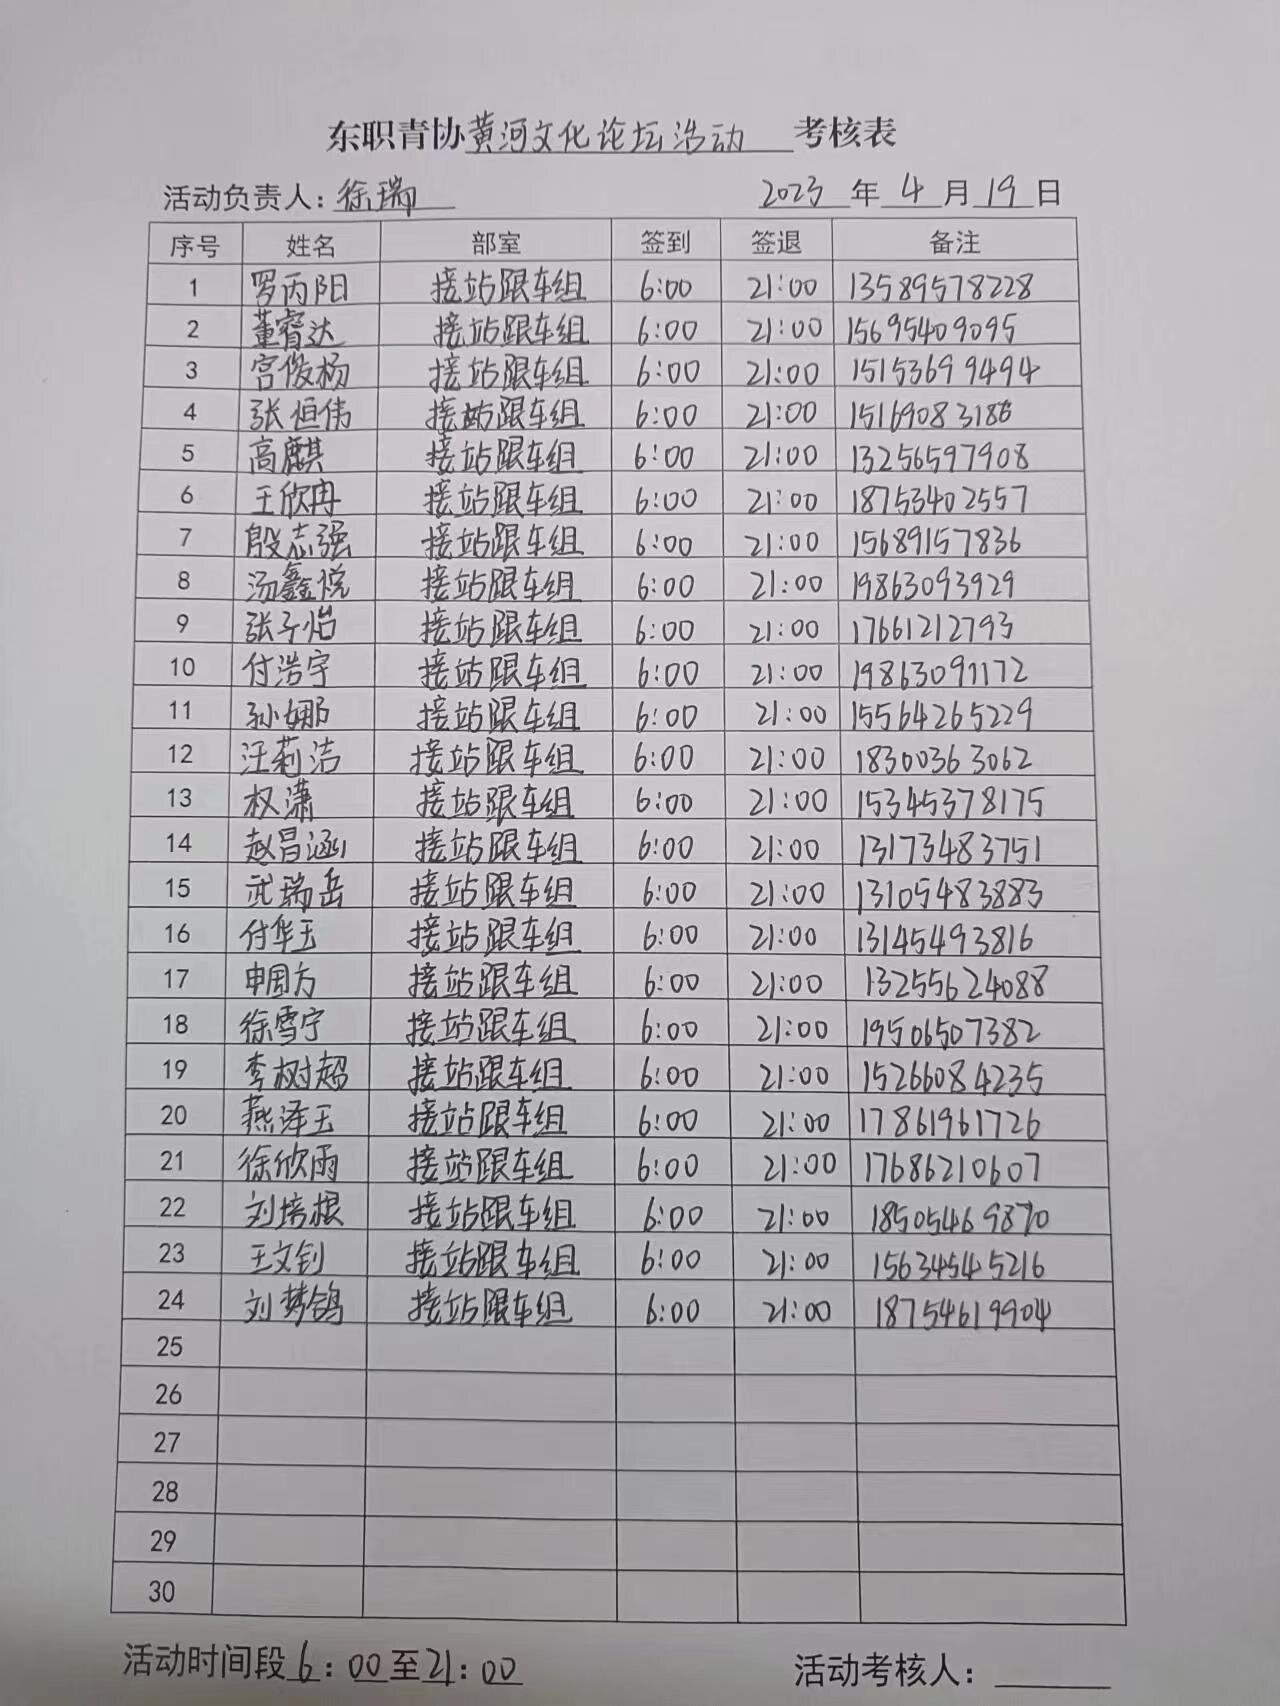 东职青协黄河文化论坛活动 考核表
活动负责人：徐瑞 2023 年 4 月 19 日
序号 姓名 部室 签到 签退 备注
1 罗丙阳 接站跟车组 6:00 21:00 13589578228
2 董睿达 接站跟车组 6:00 21:00 15695409095
3 宫俊杨 接站跟车组 6:00 21:00 15153699494
4 张恒伟 接站跟车组 6:00 21:00 15169083186
5 高麒 接站跟车组 6:00 21:00 13256597908
6 王欣冉 接站跟车组 6:00 21:00 18753402557
7 殷志强 接站跟车组 6:00 21:00 15689157836
8 汤鑫悦 接站跟车组 6:00 21:00 19863093929
9 张子怡 接站跟车组 6:00 21:00 17661212793
10 付浩宇 接站跟车组 6:00 21:00 19863091172
11 孙娜 接站跟车组 6:00 21:00 15564265229
12 汪莉洁 接站跟车组 6:00 21:00 18300363062
13 权潇 接站跟车组 6:00 21:00 15345378175
14 赵昌涵 接站跟车组 6:00 21:00 13173483751
15 武瑞岳 接站跟车组 6:00 21:00 13105483883
16 付华玉 接站跟车组 6:00 21:00 13145493816
17 申国方 接站跟车组 6:00 21:00 13255624088
18 徐雪宁 接站跟车组 6:00 21:00 19506507382
19 李树超 接站跟车组 6:00 21:00 15266084235
20 燕泽玉 接站跟车组 6:00 21:00 17861961726
21 徐欣雨 接站跟车组 6:00 21:00 17686210607
22 刘培根 接站跟车组 6:00 21:00 18505469870
23 王文钊 接站跟车组 6:00 21:00 15634545216
24 刘梦鸽 接站跟车组 6:00 21:00 18754619904
25
26
27
28
29
30
活动时间段 6：00 至 21：00 活动考核人：